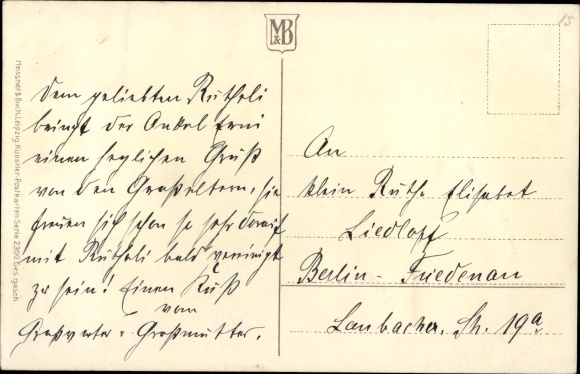 M&B
15
Meissner & Buch, Leipzig Künstler-Postkarten Serie 2300 Ges. gesch.
Dem geliebten Rutheli
bringt der Onkel Erni
einen herzlichen Gruß
von den Großeltern, sie
freuen sich schon so sehr darauf
mit Rutheli bald vereinigt
zu sein! Einen Kuß
vom
Großvater u. Großmutter.
An
klein Ruth Elisabet
Liedloff
Berlin - Friedenau
Laubacher Str. 19a